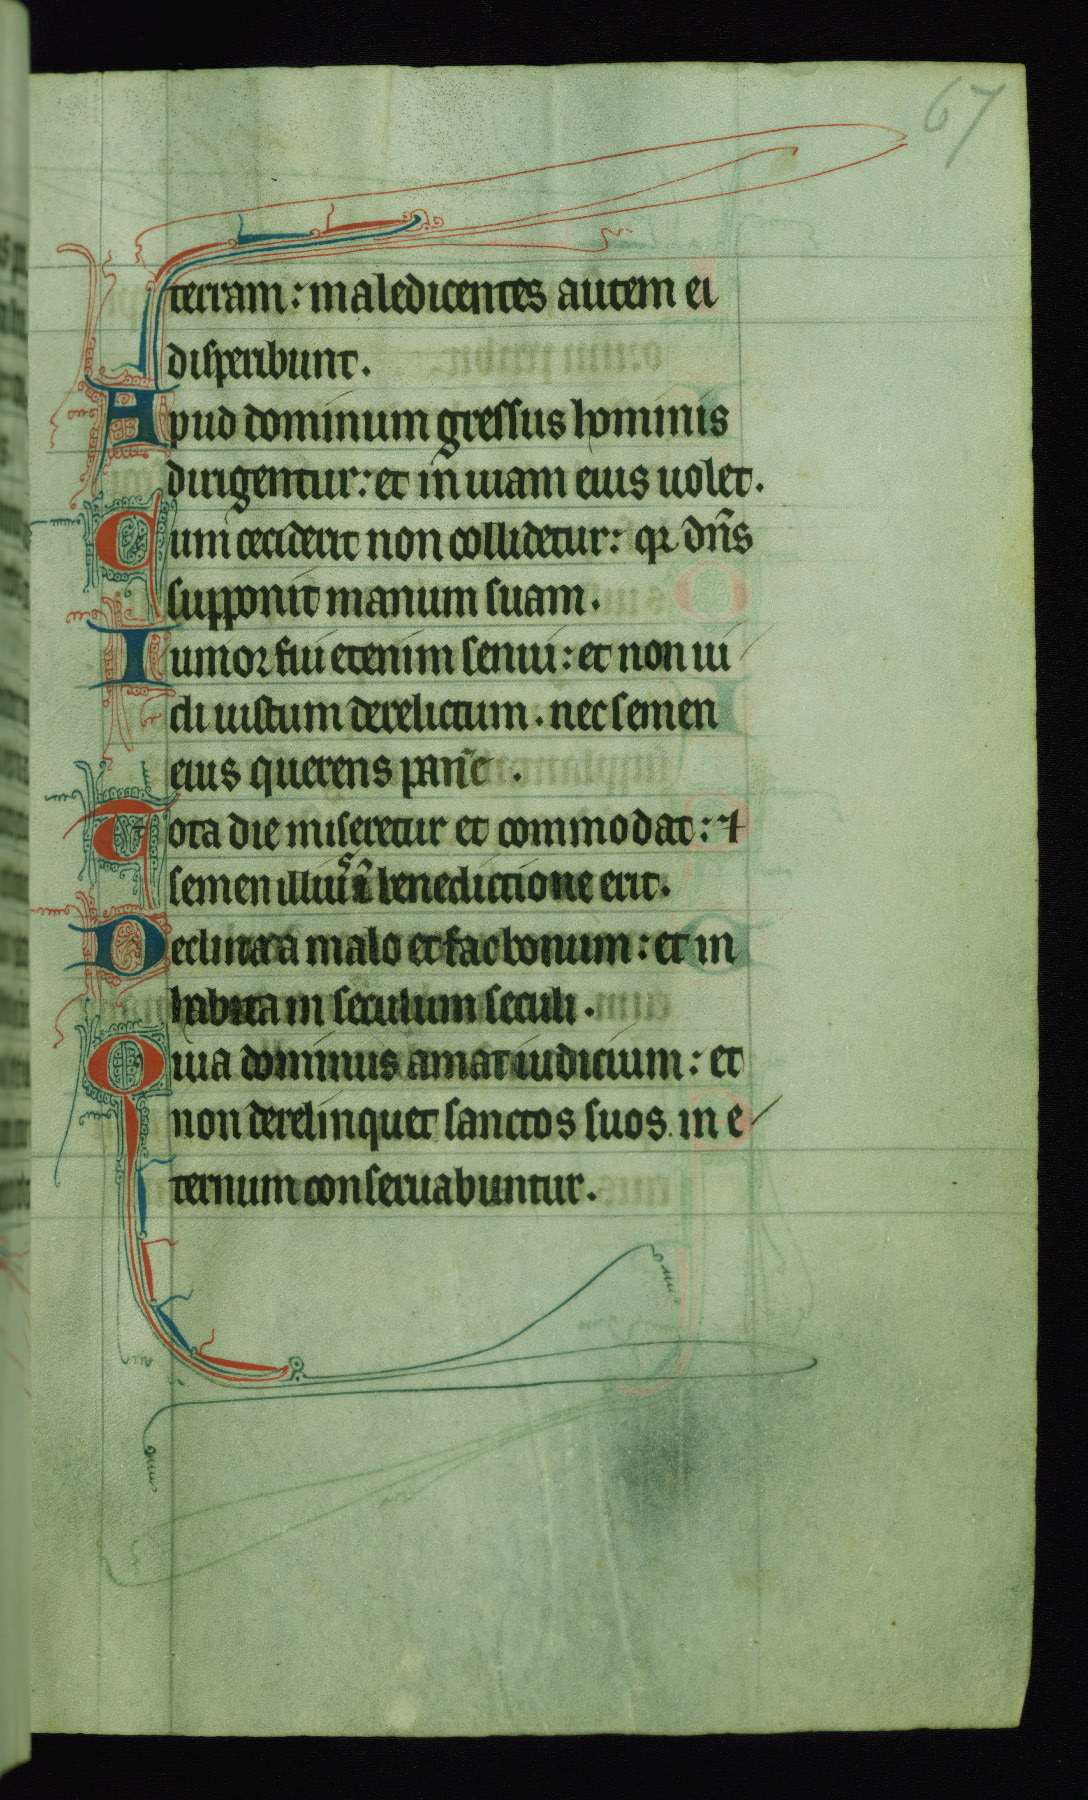 67
terram: maledicentes autem ei
disperibunt.
Apud dominum gressus hominis
dirigentur: et in uiam eius uolet.
Cum ceciderit non collidetur: qr dn̄s
supponit manum suam.
Iunior fui etenim senui: et non ui
di iustum derelictum. nec semen
eius querens panē.
Tota die miseretur et commodat: ⁊
semen illius ī benedictione erit.
Declina a malo et fac bonum: et in
habita in seculum seculi.
Quia dominus amat iudicium: et
non derelinquet sanctos suos. in e
ternum conseruabuntur.